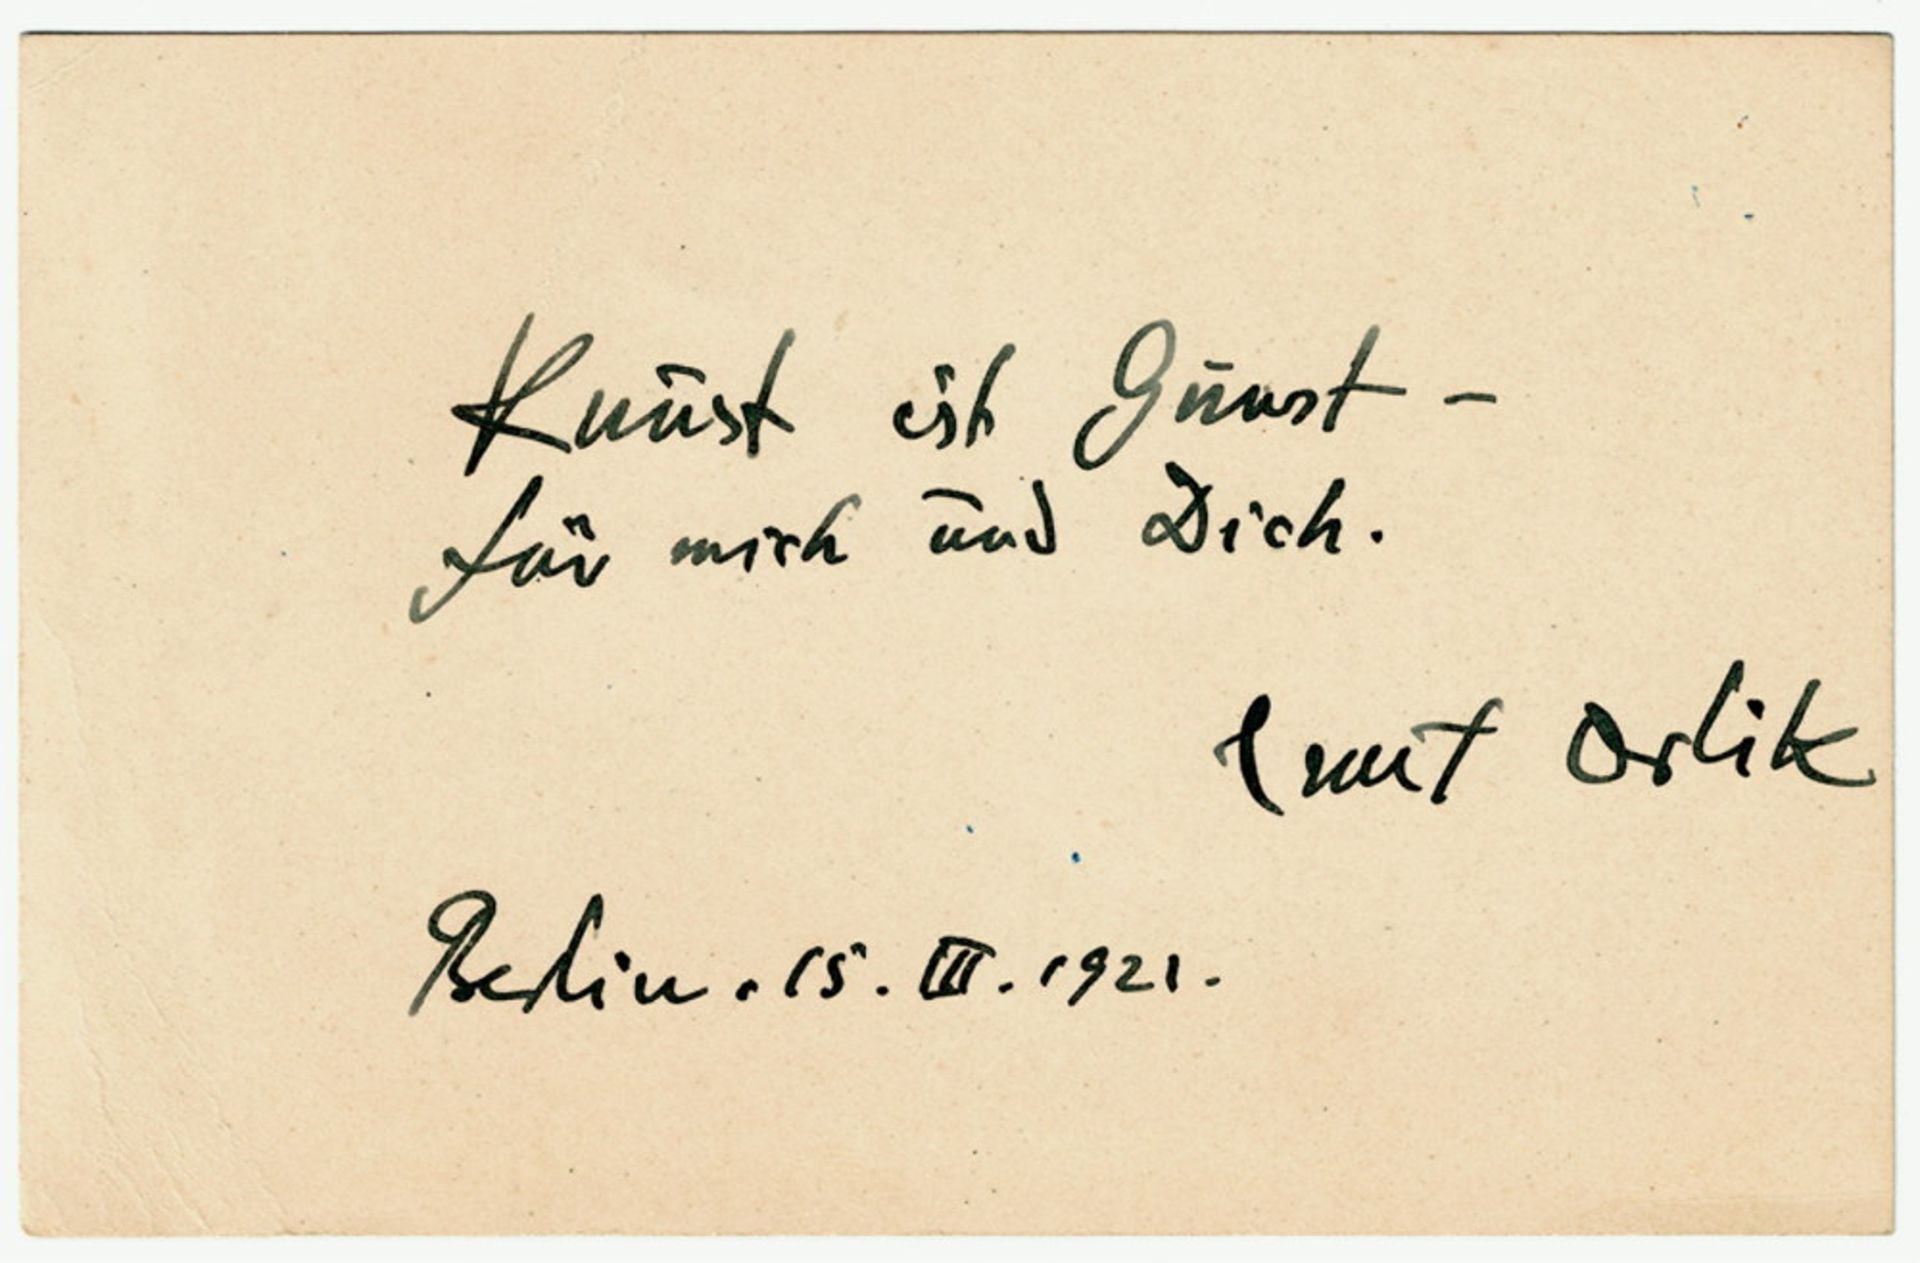 Kunst ist Gunst –
für mich und Dich.
Emil Orlik
Berlin. 15. III. 1921.